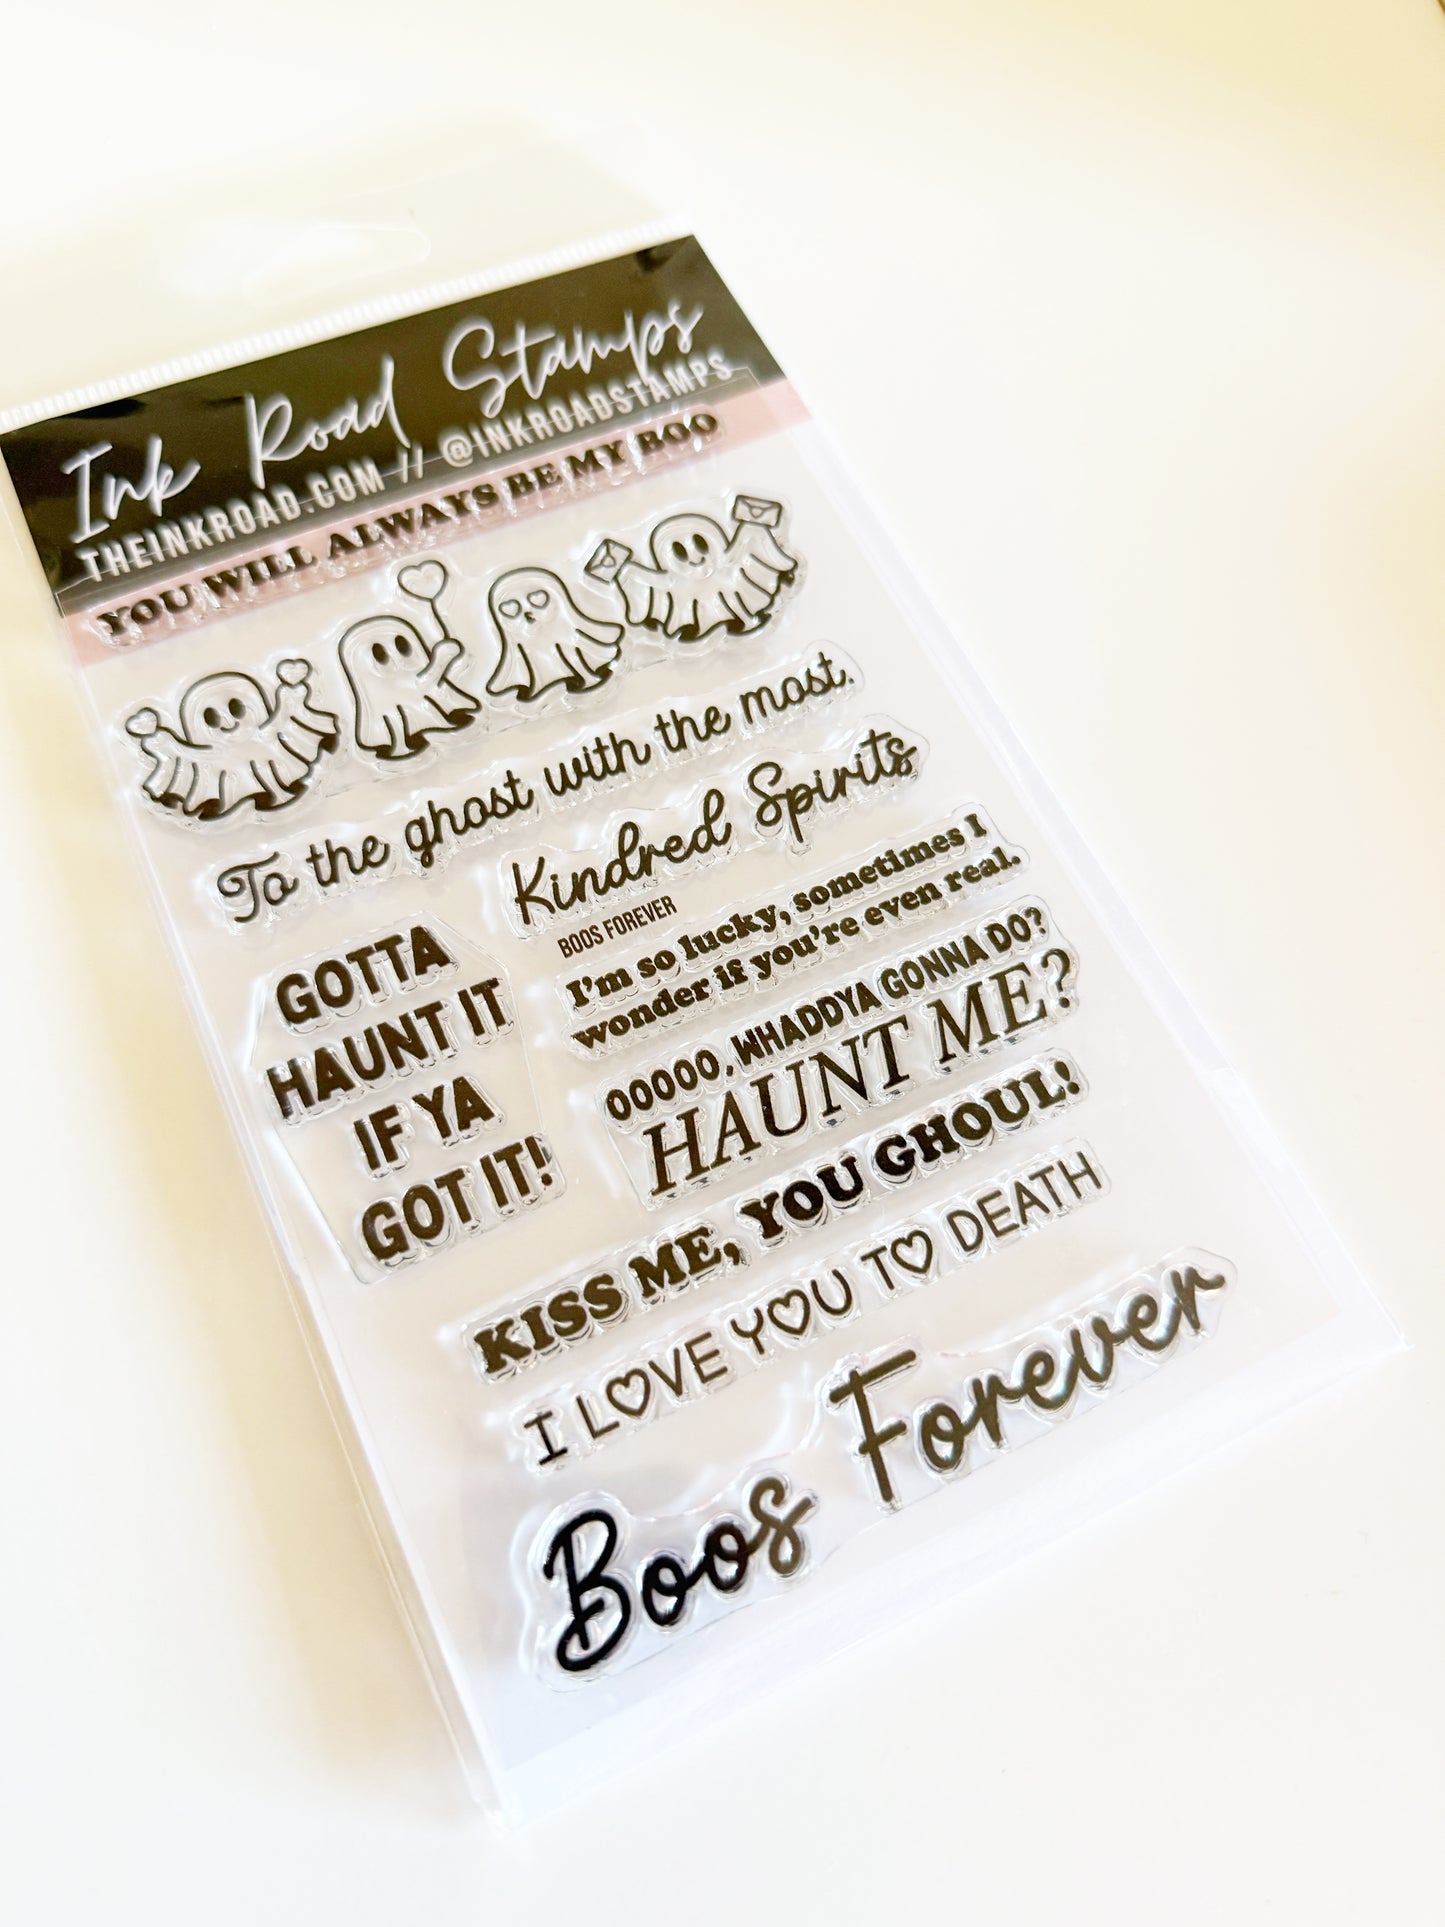 Ink Road Stamps
THEINKROAD.COM // @INKROADSTAMPS
YOU WILL ALWAYS BE MY BOO
To the ghost with the most.
Kindred Spirits
BOOS FOREVER
I'm so lucky, sometimes I
wonder if you're even real.
GOTTA
HAUNT IT
IF YA
GOT IT!
OOOOO, WHADDYA GONNA DO?
HAUNT ME?
KISS ME, YOU GHOUL!
I LOVE YOU TO DEATH
Boos Forever